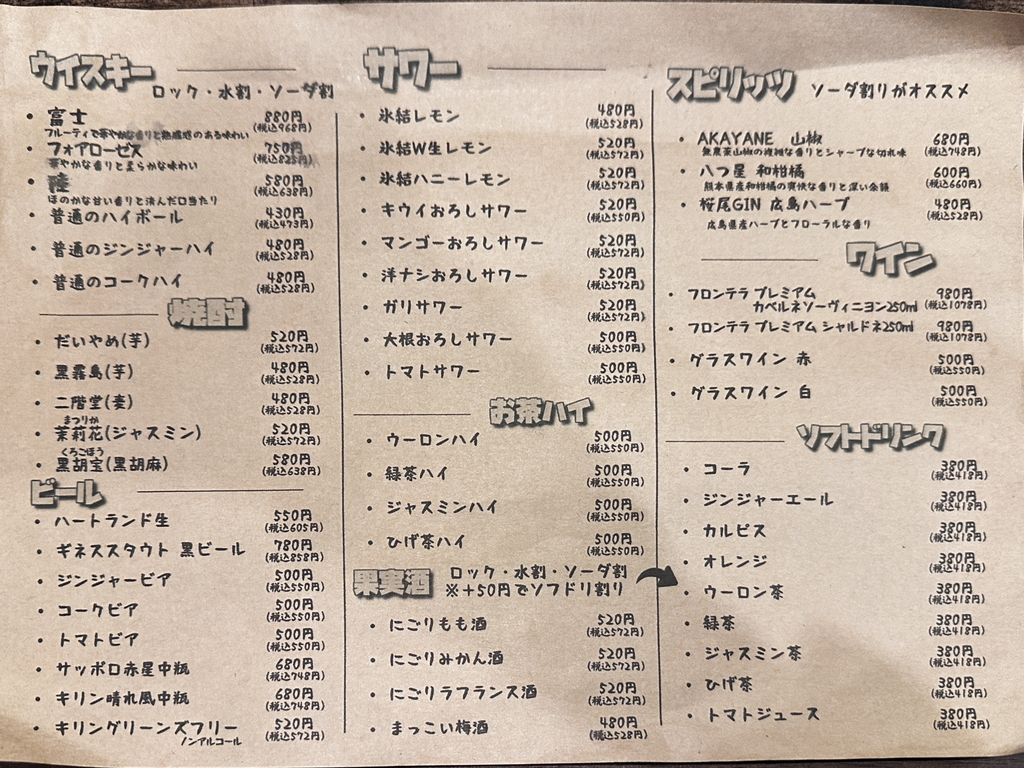 ウイスキー
ロック・水割・ソーダ割
・富士 880円
フルーティで華やかな香りと熟成感のある味わい (税込968円)
・フォアローゼス 750円
華やかな香りと柔らかな味わい (税込825円)
・陸 580円
ほのかな甘い香りと澄んだ口当たり (税込638円)
・普通のハイボール 430円
(税込473円)
・普通のジンジャーハイ 480円
(税込528円)
・普通のコークハイ 480円
(税込528円)
焼酎
・だいやめ(芋) 520円
(税込572円)
・黒霧島(芋) 480円
(税込528円)
・二階堂(麦) 480円
(税込528円)
まつりか
・茉莉花(ジャスミン) 520円
(税込572円)
くろごほう
・黒胡宝(黒胡麻) 580円
(税込638円)
ビール
・ハートランド生 550円
(税込605円)
・ギネススタウト 黒ビール 780円
(税込858円)
・ジンジャービア 500円
(税込550円)
・コークビア 500円
(税込550円)
・トマトビア 500円
(税込550円)
・サッポロ赤星中瓶 680円
(税込748円)
・キリン晴れ風中瓶 680円
(税込748円)
・キリングリーンズフリー 520円
ノンアルコール (税込572円)
サワー
・氷結レモン 480円
(税込528円)
・氷結W生レモン 520円
(税込572円)
・氷結ハニーレモン 520円
(税込572円)
・キウイおろしサワー 520円
(税込550円)
・マンゴーおろしサワー 520円
(税込572円)
・洋ナシおろしサワー 520円
(税込572円)
・ガリサワー 520円
(税込572円)
・大根おろしサワー 500円
(税込550円)
・トマトサワー 500円
(税込550円)
お茶ハイ
・ウーロンハイ 500円
(税込550円)
・緑茶ハイ 500円
(税込550円)
・ジャスミンハイ 500円
(税込550円)
・ひげ茶ハイ 500円
(税込550円)
果実酒
ロック・水割・ソーダ割
※+50円でソフドリ割り
・にごりもも酒 520円
(税込572円)
・にごりみかん酒 520円
(税込572円)
・にごりラフランス酒 520円
(税込572円)
・まっこい梅酒 480円
(税込528円)
スピリッツ
ソーダ割りがオススメ
・AKAYANE 山椒 680円
無農薬山椒の複雑な香りとシャープな切れ味 (税込748円)
・八つ星 和柑橘 600円
熊本県産和柑橘の爽快な香りと深い余韻 (税込660円)
・桜尾GIN 広島ハーブ 480円
広島県産ハーブとフローラルな香り (税込528円)
ワイン
・フロンテラ プレミアム 980円
カベルネソーヴィニヨン250ml (税込1078円)
・フロンテラ プレミアム シャルドネ250ml 980円
(税込1078円)
・グラスワイン 赤 500円
(税込550円)
・グラスワイン 白 500円
(税込550円)
ソフトドリンク
・コーラ 380円
(税込418円)
・ジンジャーエール 380円
(税込418円)
・カルピス 380円
(税込418円)
・オレンジ 380円
(税込418円)
・ウーロン茶 380円
(税込418円)
・緑茶 380円
(税込418円)
・ジャスミン茶 380円
(税込418円)
・ひげ茶 380円
(税込418円)
・トマトジュース 380円
(税込418円)